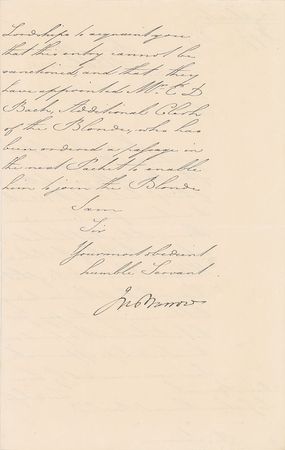 Lordships to acquaint you
that this entry cannot be
sanctioned, and that they
have appointed Mr. C. D
Back, Additional Clerk
of the Blonde, who has
been ordered a passage in
the next Packet to enable
him to join the Blonde
I am
Sir
Your most obedient
humble Servant
Jno Barrow